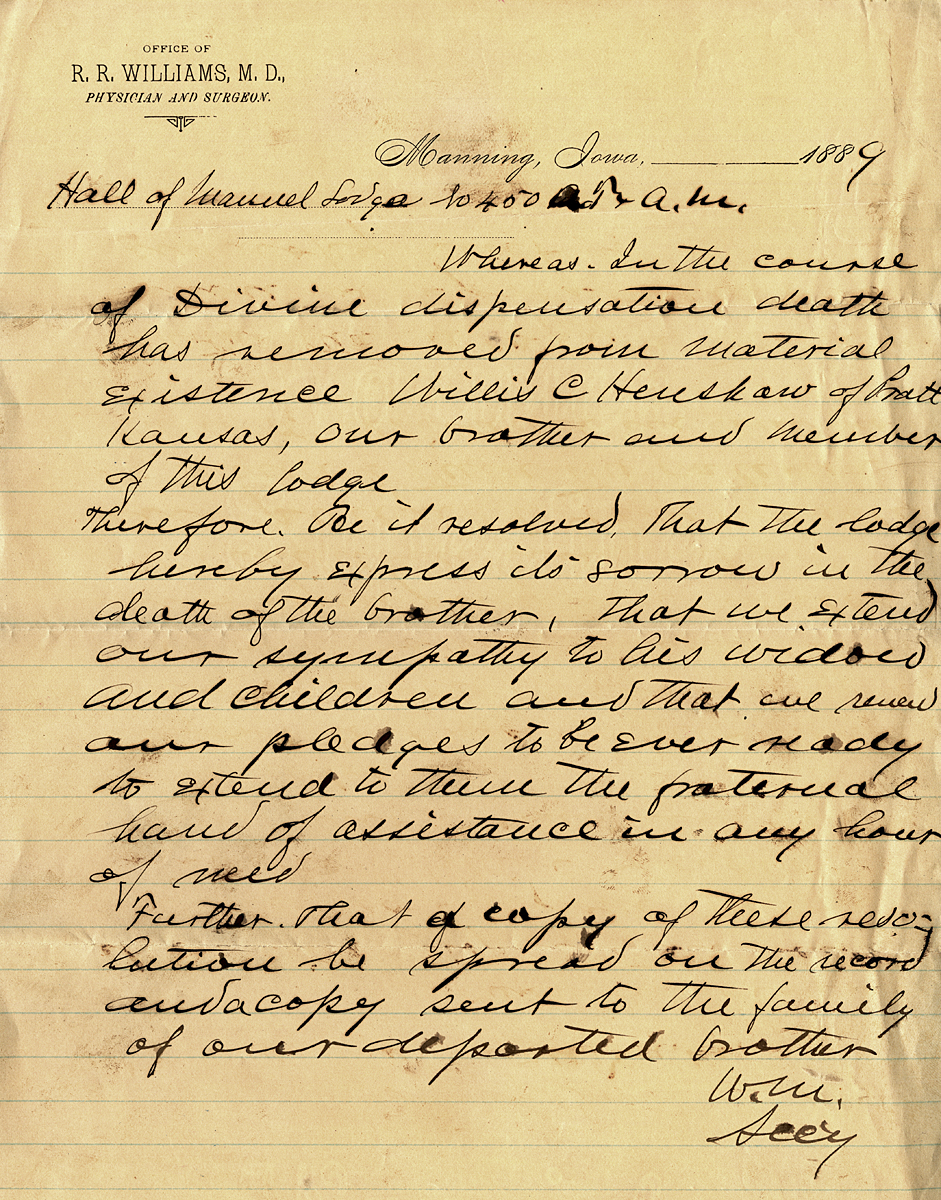 OFFICE OF
R. R. WILLIAMS, M. D.,
PHYSICIAN AND SURGEON.
Manning, Iowa, 1889
Hall of Manuel Lodge No 450 A. M.
Whereas. In the course
of Divine dispensation death
has removed from material
existence Willis C Henshaw of Pratt
Kansas, our brother and member
of this lodge
Therefore. Be it resolved, That the lodge
hereby express its sorrow in the
death of the brother, That we extend
our sympathy to his widow
and children and that we renew
our pledges to be ever ready
to extend to them the fraternal
hand of assistance in any hour
of need
Further. That a copy of these reso-
lution be spread on the record
and a copy sent to the family
of our departed brother
W. M.
Secy